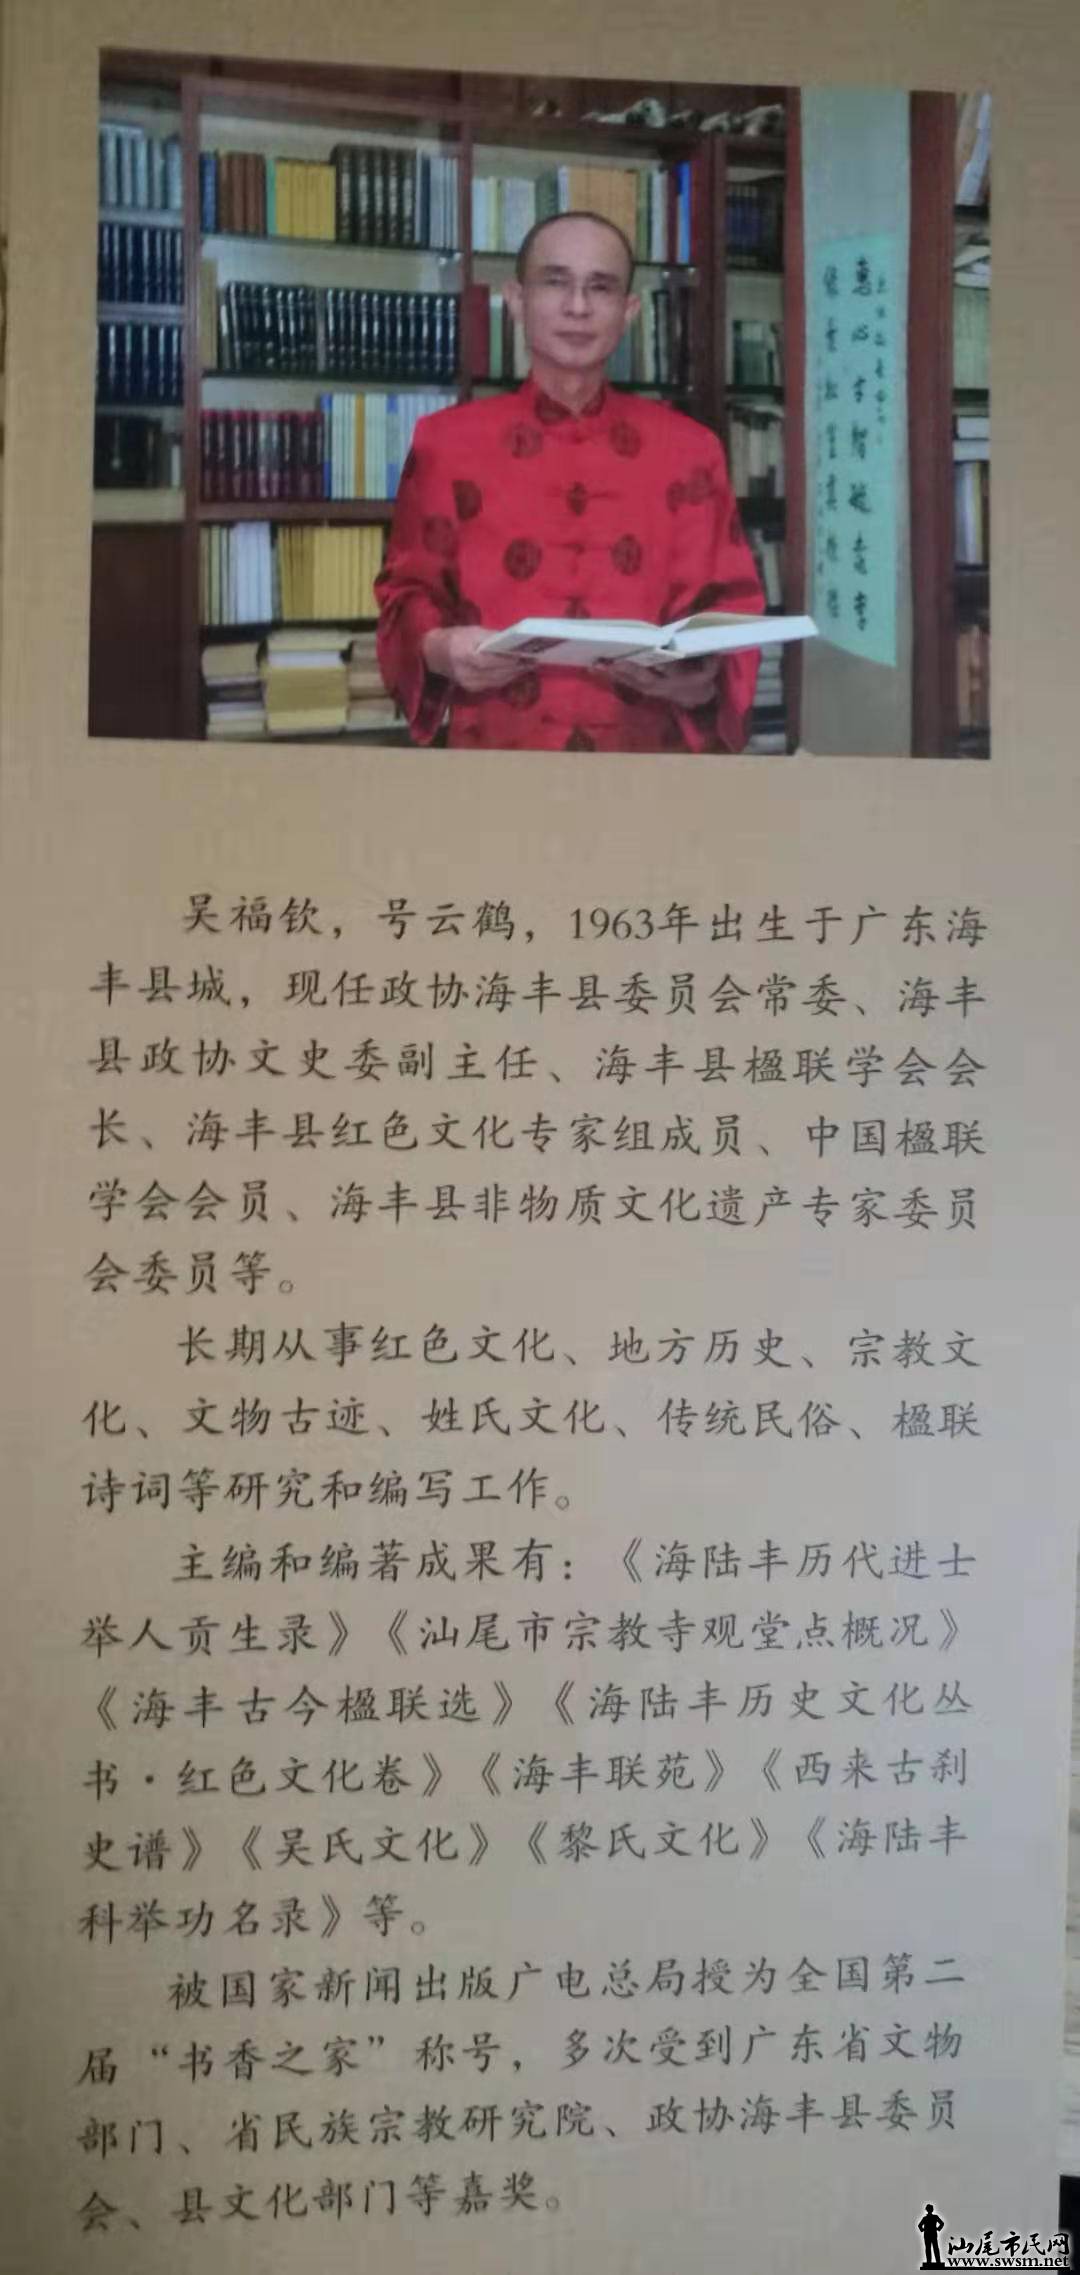 吴福钦，号云鹤，1963年出生于广东海
丰县城，现任政协海丰县委员会常委、海丰
县政协文史委副主任、海丰县楹联学会会
长、海丰县红色文化专家组成员、中国楹联
学会会员、海丰县非物质文化遗产专家委员
会委员等。
长期从事红色文化、地方历史、宗教文
化、文物古迹、姓氏文化、传统民俗、楹联
诗词等研究和编写工作。
主编和编著成果有：《海陆丰历代进士
举人贡生录》《汕尾市宗教寺观堂点概况》
《海丰古今楹联选》《海陆丰历史文化丛
书·红色文化卷》《海丰联苑》《西来古刹
史谱》《吴氏文化》《黎氏文化》《海陆丰
科举功名录》等。
被国家新闻出版广电总局授为全国第二
届“书香之家”称号，多次受到广东省文物
部门、省民族宗教研究院、政协海丰县委员
会、县文化部门等嘉奖。
汕尾市民网
www.swsm.net